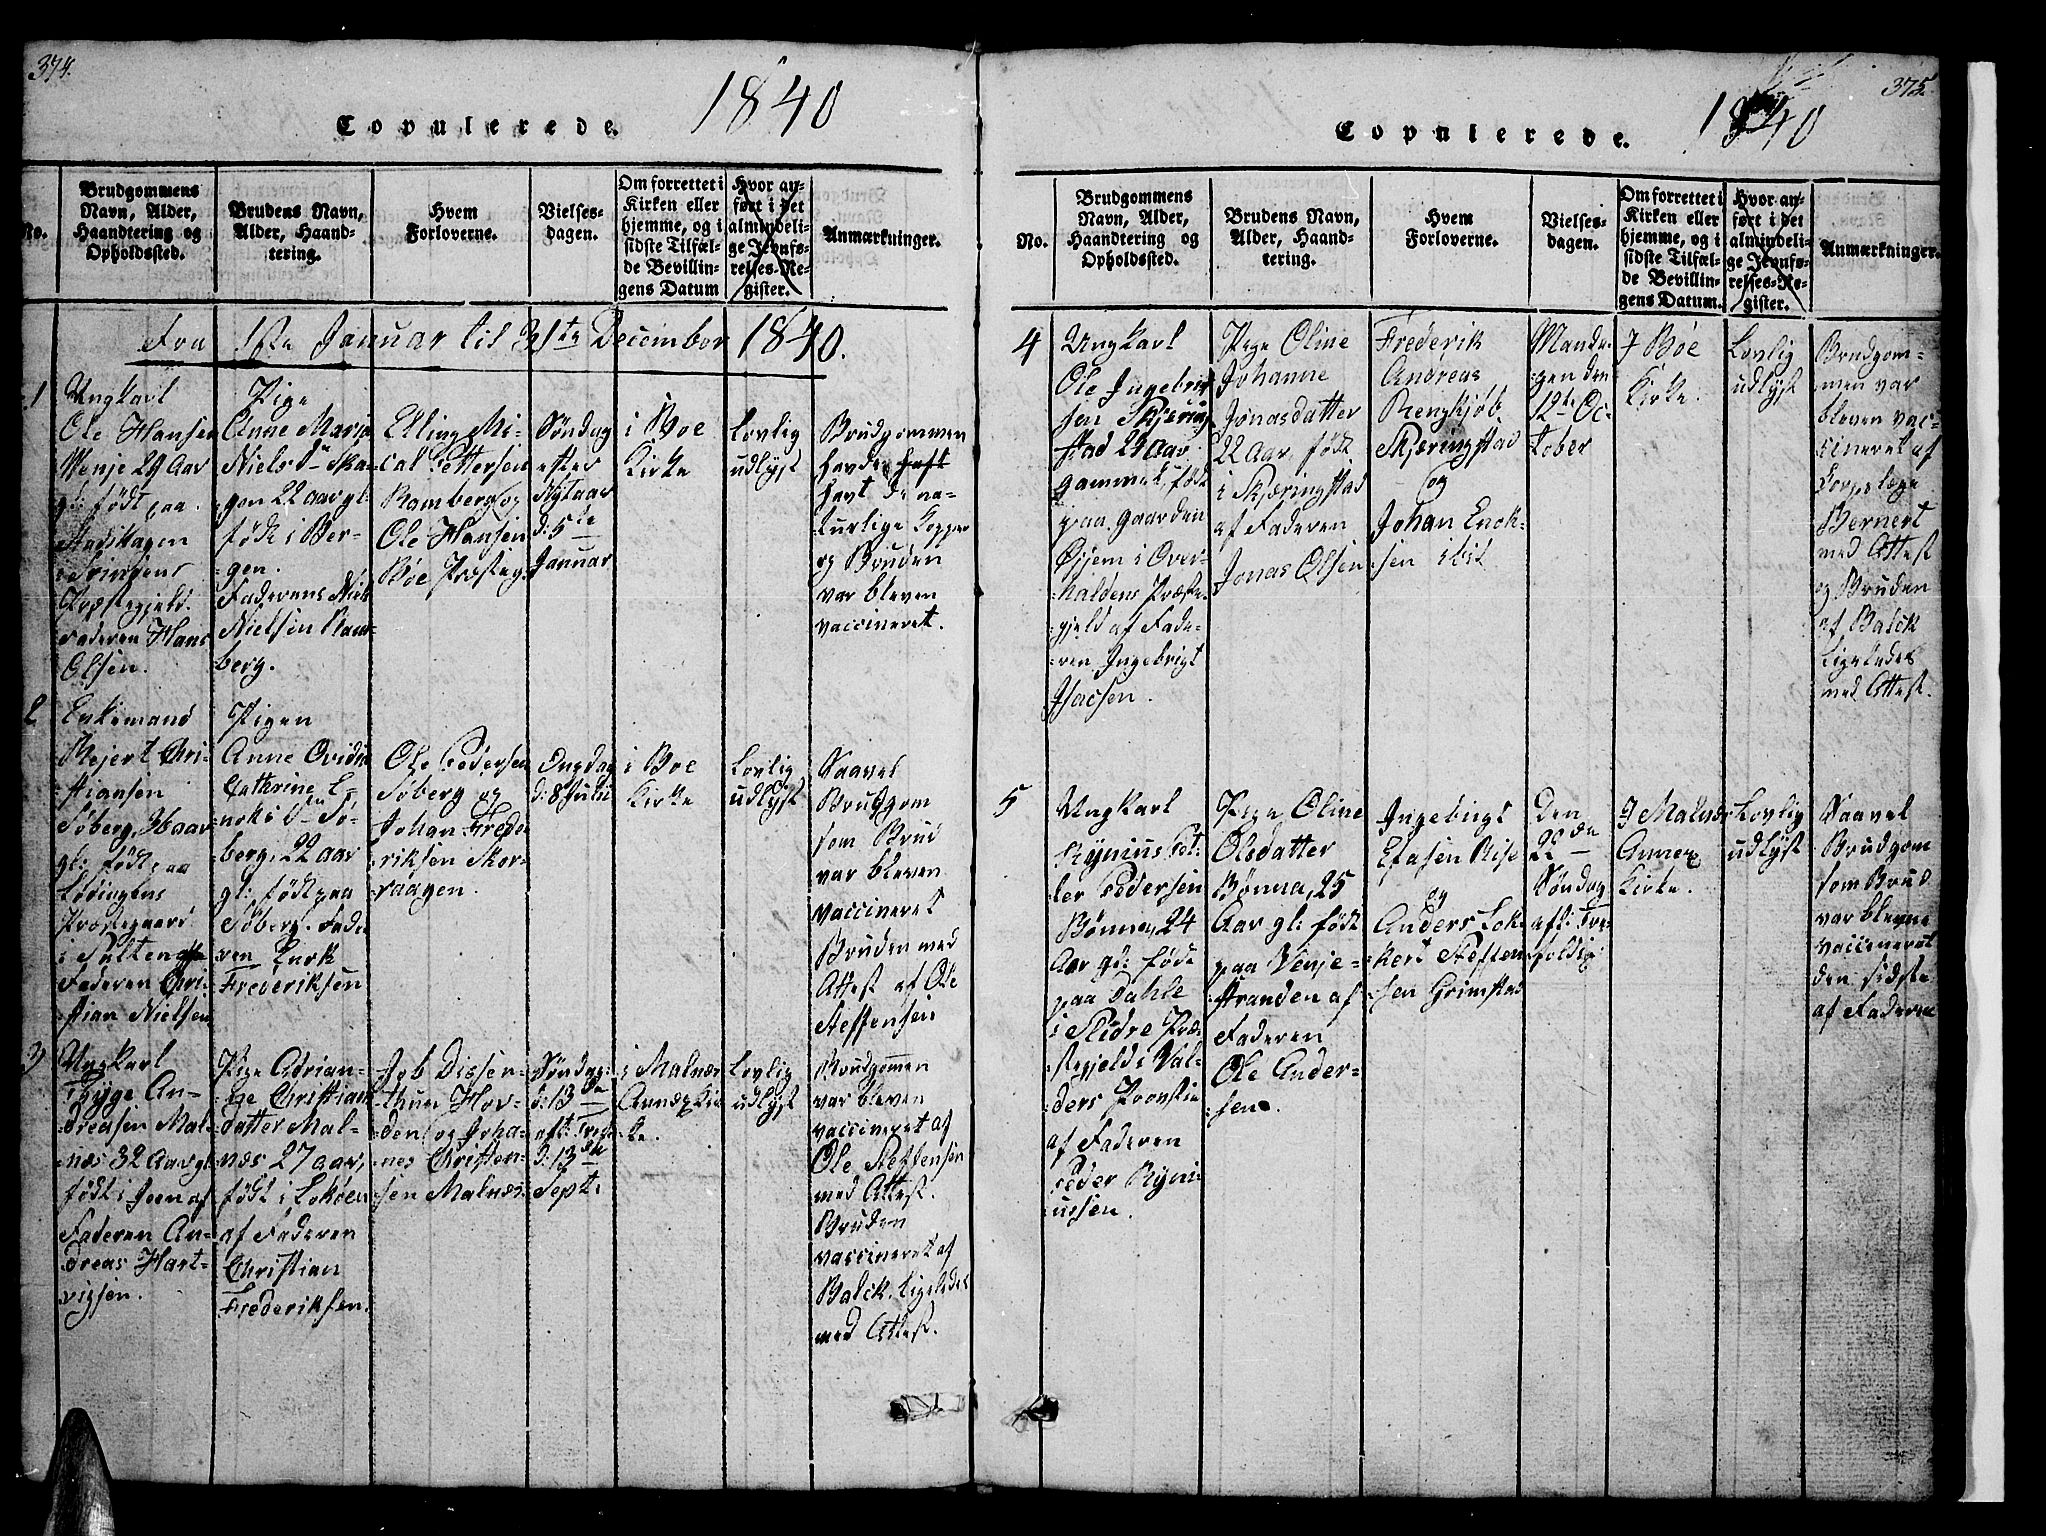 374.
Copulerede.
1840
No.
Brudgommens
Navn, Alder,
Haandtering og
Opholdssted.
Brudens Navn,
Alder, Haand-
tering.
Hvem
Forloverne.
Vielses-
dagen.
Om forrettet i
Kirken eller
hjemme, og i
sidste Tilfæl-
de Bevillin-
gens Datum
Hvor an-
ført i det
almindeli-
ge Jevnfø-
relses-Re-
gister.
Anmærkninger.
Fra 1ste Januar til 31te December 1840.
1
Ungkarl
Ole Hansen
Menje 29 Aar
gl: født paa
Præstegjeld.
Faderen Hans
Olsen.
Pige
Anne Marie
Nielsd Ska-
gen 22 aar gl:
født i Ber-
gen.
Faderens Niels
Nielsen Ram-
berg.
Elling Mi-
cal Pettersen
Ramberg og
Ole Hansen
Bøe Præsteg
Søndag
efter
Nytaar
d: 5te
Januar
i Boe
Kirke
Lovlig
udlyst
Brudgommen
havde haft
havt de na-
turlige Kopper
og Bruden
var bleven
vaccineret.
2
Enkemand
Mejert Chri-
stiansen
Søberg, 36 aar
gl: født paa
Lødingens
Præstegaard
i Salten
Faderen Chri-
stian Nielsen
Pigen
Anne Ovidia
Cathrine E-
noks Dn Sø-
berg, 22 aar
gl: født paa
Søberg. Fade
ren Enok
Frederiksen
Ole Pedersen
Søberg og
Johan Frede
riksen Skor-
vaagen.
Onsdag
d: 8 Julii
i Boe
Kirke
Lovlig
udlyst
Saavel
Brudgom
som Brud
var bleven
vaccineret
Bruden med
Attest af Ole
Steffensen
3
Ungkarl
Tyge An-
dreasen Mal-
næs 32 Aar gl
født i Jeen af
Faderen An-
dreas Hart-
vigsen.
Pige Adrian-
ne Christians
datter Mal-
næs 27 aar,
født i Lokøen
af Faderen
Christian
Frederiksen.
Job Dissen-
thun Hov-
den og Joha-
nes Christen-
sen Malnæs
Søndag
d: 13de
aft: Tref
d: 13de
Sept:
i Malnæs
Annex Kir
ke.
Lovlig
udlyst
Brudgomen
var bleven
vaccineret af
Ole Steffensen
med Attest.
Bruden
vaccineret af
Balck ligeledes
med Attest.
375.
Copulerede.
1840
No.
Brudgommens
Navn, Alder,
Haandtering og
Opholdssted.
Brudens Navn,
Alder, Haand-
tering.
Hvem
Forloverne.
Vielses-
dagen.
Om forrettet i
Kirken eller
hjemme, og i
sidste Tilfæl-
de Bevillin-
gens Datum.
Hvor an-
ført i det
almindeli-
ge Jevnfø-
relses-Re-
gister.
Anmærkninger.
4
Ungkarl
Ole Ingebrigt
sen Skjering
stad 29 Aar
gammel, født
paa Gaarden
Øijem i Over-
haldens Præste
gjeld af Fade-
ren Ingebrigt
Isacsen.
Pige Oline
Johanne
Jonasdatter
22 Aar, født
i Skjæringstad
af Faderen
Jonas Olsen
Frederik
Andreas
Rengkjøb
Skjæringstad
og
Johan Enok-
sen ibid
Manda-
gen den
12te Oc-
tober
I Bøe
Kirke.
Lovlig
udlyst
Brudgom-
men var
bleven vac-
cineret af
Corpslæge
Bernert
med Attest
og Bruden
af Balck
ligeledes
med Attest.
5
Ungkarl
Rynius Pet-
ter Pedersen
Bønna, 24
Aar gl: født
paa Dahle
i Slidre Præ-
stegjeld i Val-
ders Provstie
af Faderen
Peder Ryni-
ussen.
Pige Oline
Olsdatter
Bønna, 25
Aar gl: født
paa Venje-
stranden af
Faderen
Ole Ander-
sen.
Ingebrigt
Efasen Rise
og
Anders Lok-
kert Steffen
sen Grimstad
Den
22de
Søndag
aft: Tre-
foldig:
I Malnæs
Annex
Kirke.
Lovlig
udlyst
Saavel
Brudgom
som Brud
var blevne
vaccineret
den sidste
af Faderen